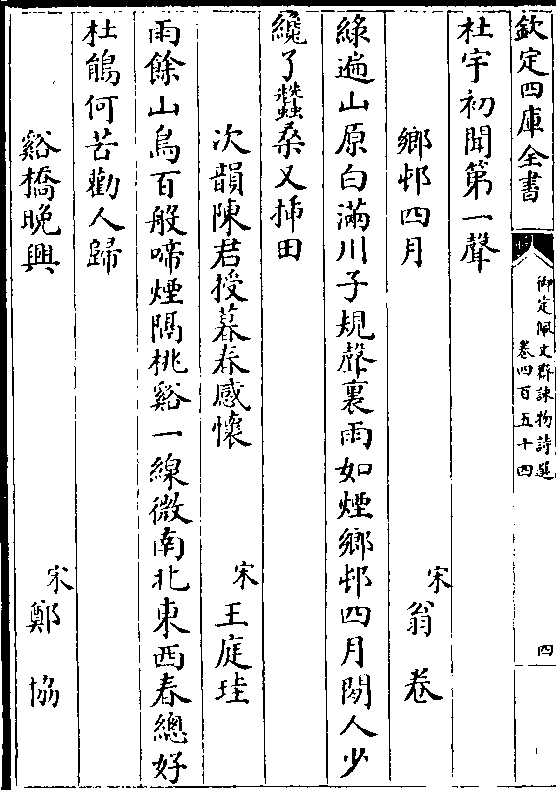 欽定四庫全書
御定佩文齋詠物詩選
卷四百五十四
四
杜宇初聞第一聲
鄉邨四月
宋
翁卷
綠遍山原白滿川子規聲裏雨如煙鄉邨四月閒人少
纔了蠶桑又揷田
次韻陳君授暮春感懷
宋
王庭珪
雨餘山鳥百般啼煙隔桃谿一線微南北東西春總好
杜鵑何苦勸人歸
谿橋晚興
宋
鄭協